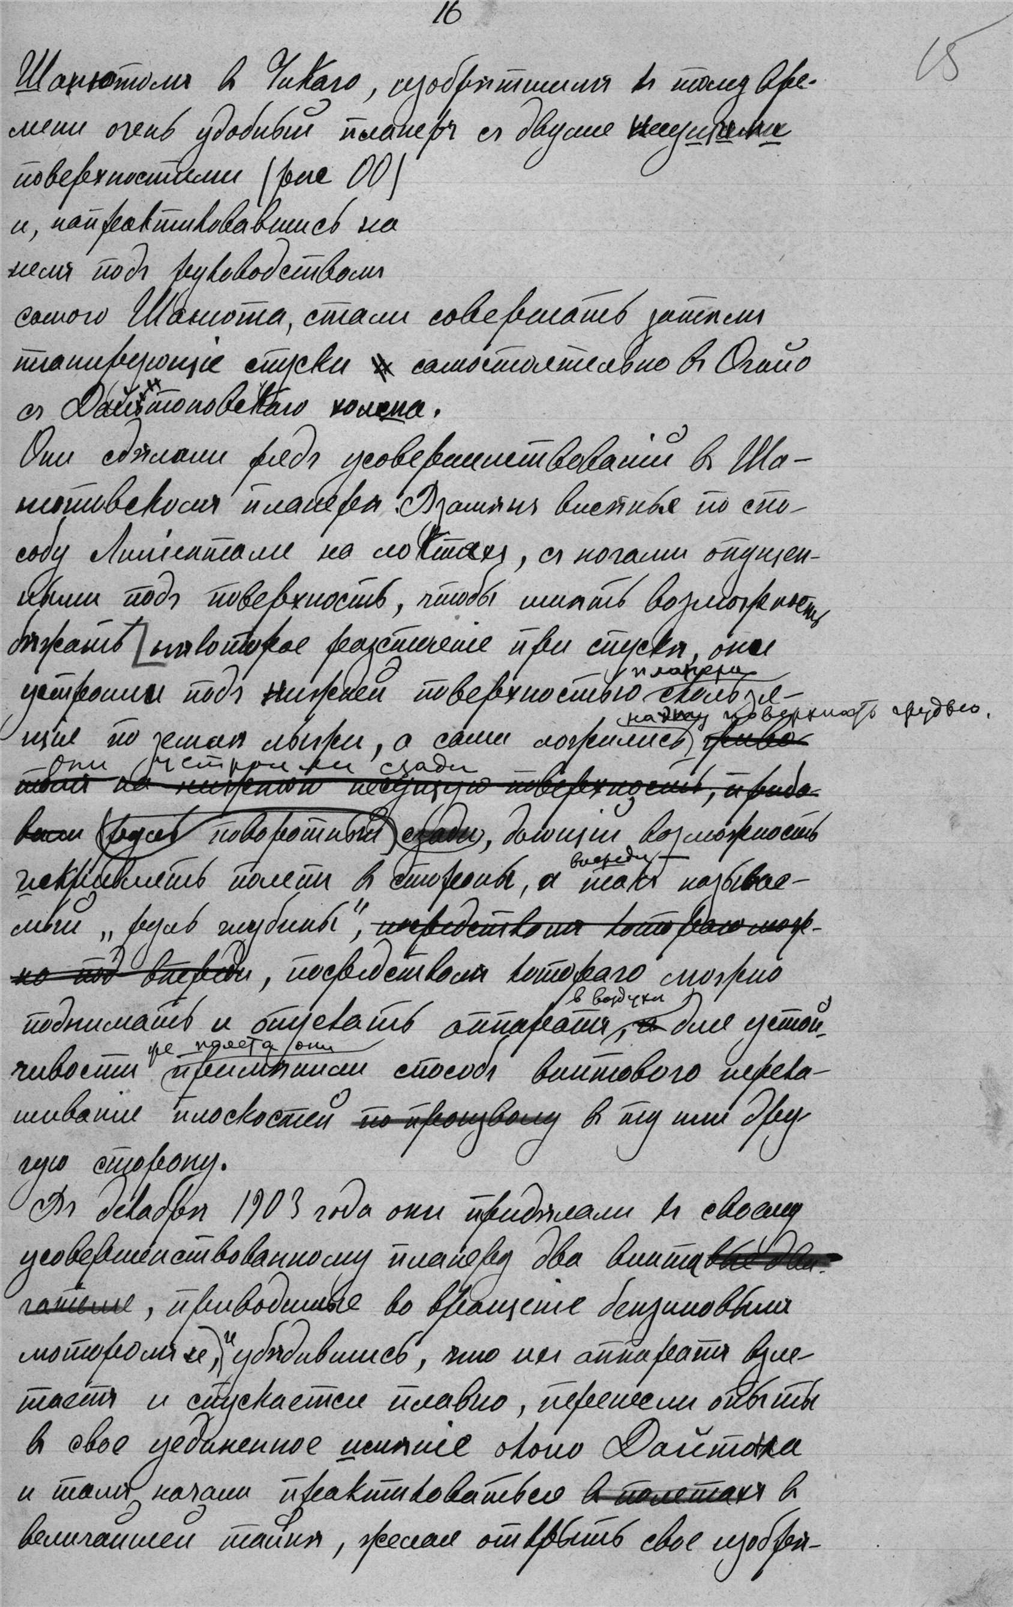 16
15
Шанютомъ въ Чикаго, изобрѣтшимъ къ тому вре-
мени очень удобный планеръ съ двумя несущими
поверхностями (рис 00)
и, напрактиковавшись на
немъ подъ руководствомъ
самого Шанюта, стали совершать затѣмъ
планирующіе спуски самостоятельно въ Огайо
съ Дайтоновскаго холма.
Они сдѣлали рядъ усовершенствованій въ Ша-
нютовскомъ планерѣ. Взамѣнъ висѣнья по спо-
собу Лиліенталя на локтяхъ, съ ногами опущен-
ными подъ поверхность, чтобы имѣть возможность
бѣжать нѣкоторое разстояніе при спускѣ, они
планера
устроили подъ нижней поверхностью скользя-
поверхность грудью.
щіе по землѣ лыжи, а сами ложились живо-
они устроили сзади
томъ на нижнюю несущую поверхность, приба-
вили руль поворотный сзади, дающій возможность
впереди
искривлять полетъ въ стороны, а такъ называе-
мый „руль глубины", посредствомъ котораго мож-
но под впереди, посредствомъ котораго можно
в воздухѣ
поднимать и опускать аппаратъ, и для устой-
же полета они
чивости примѣнили способъ винтового перека-
шиванія плоскостей по произволу въ ту или дру-
гую сторону.
Въ декабрѣ 1903 года они придѣлали къ своему
усовершенствованному планеру два винта
, приводимые во вращеніе бензиновымъ
моторомъ, и убѣдившись, что ихъ аппаратъ взле-
таетъ и спускается плавно, перенесли опыты
въ свое уединенное имѣніе около Дайтона
и тамъ начали практиковаться въ полетахъ въ
величайшей тайнѣ, желая открыть свое изобрѣ-